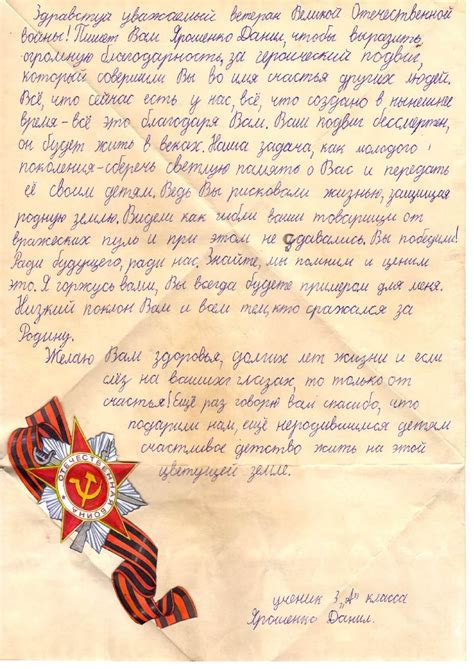 Здравствуй уважаемый ветеран Великой Отечественной
войны! Пишет Вам Ярошенко Данил, чтобы выразить
огромную благодарность, за героический подвиг,
который совершили Вы во имя счастья других людей.
Всё, что сейчас есть у нас, всё, что создано в нынешне
время - всё это благодаря Вам. Ваш подвиг бессмертен,
он будет жить в веках. Наша задача, как молодого
поколения - сберечь светлую память о Вас и передать
её своим детям. Ведь Вы рисковали жизнью, защищая
родную землю. Видели как гибли ваши товарищи от
вражеских пуль и при этом не сдавались. Вы победили!
Ради будущего, ради нас. Знайте, мы помним и ценим
это. Я горжусь вами, Вы всегда будете примером для меня.
Низкий поклон Вам и всем тем, кто сражался за
Родину.
Желаю Вам здоровья, долгих лет жизни и если
слёз на ваших глазах, то только от
счастья! Ещё раз говорю вам спасибо, что
подарили нам, ещё неродившимся детям
счастливое детство жить на этой
цветущей земле.
ОТЕЧЕСТВЕННАЯ ВОЙНА
ученик 3 „А" класса
Ярошенко Данил.